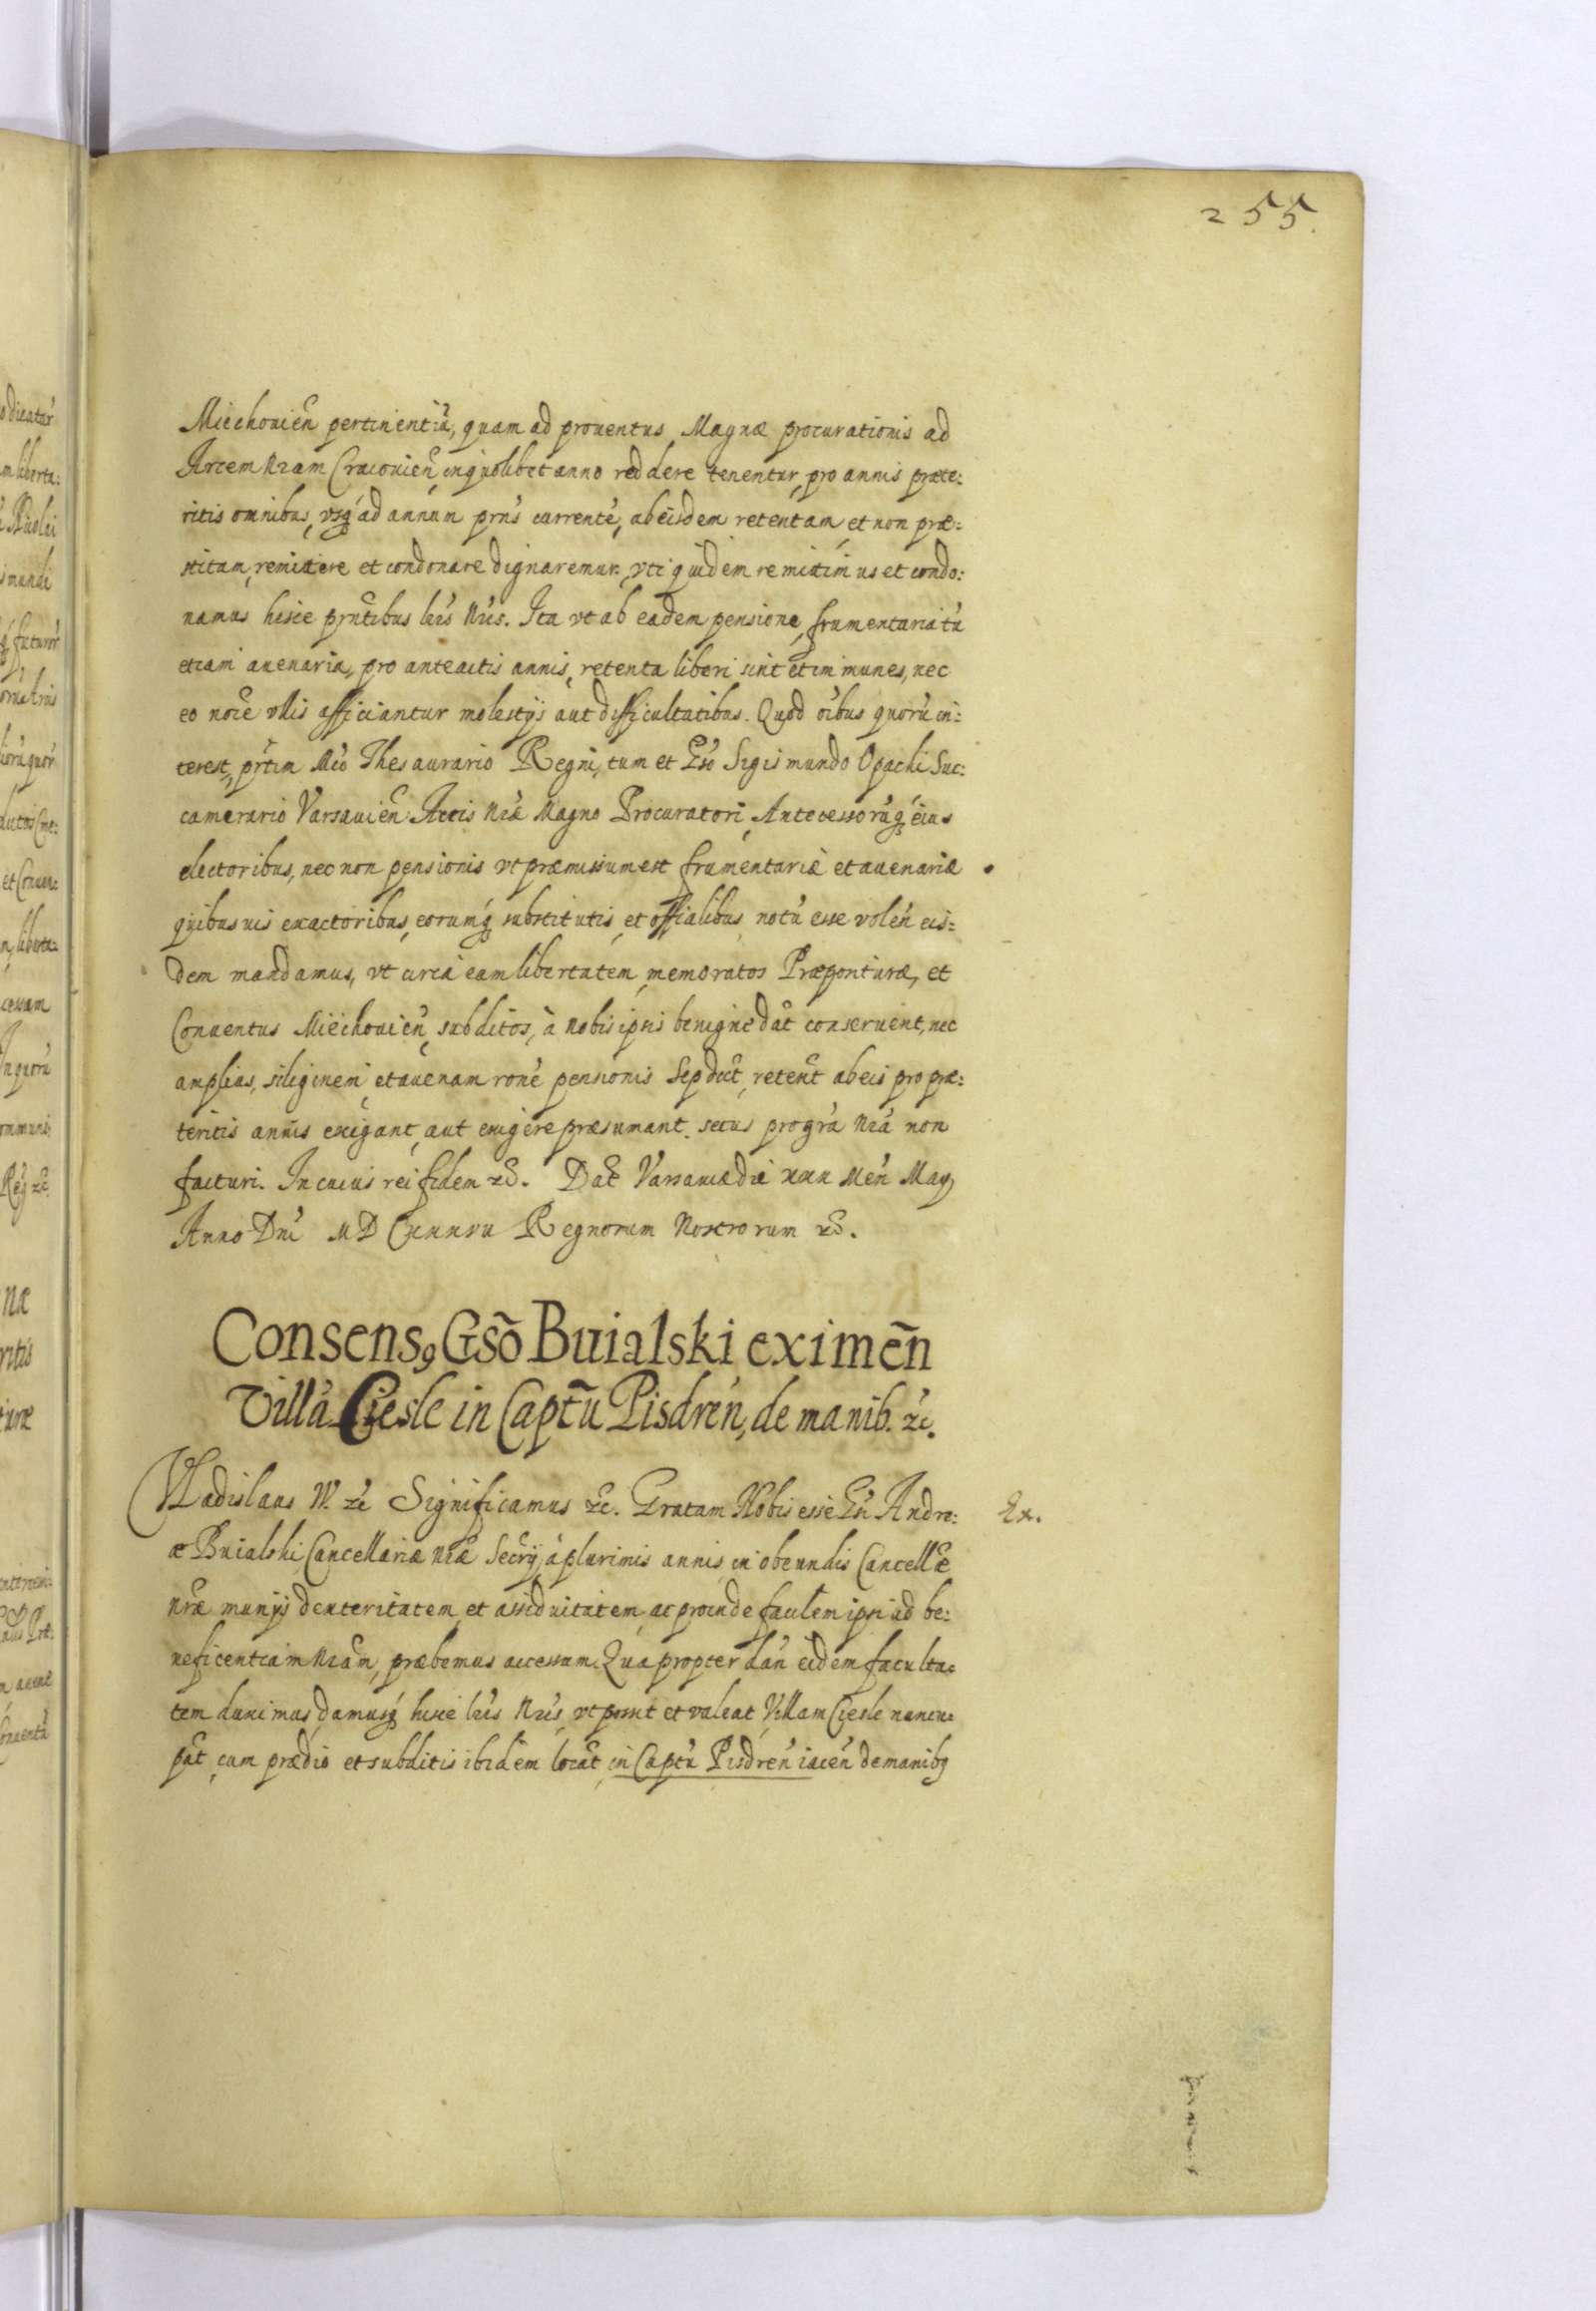 255.
Miechouien̄ pertinentiū, quam ad prouentus Magnæ procurationis ad
Arcem nr̄am Cracouien̄ in quolibet anno reddere tenentur, pro annis præte:
ritis omnibus, vsq́ ad annum prn̄s currentē, ab eisdem retentam, et non præ:
stitam, remittere et condonare dignaremur. vti quidem remittimus et condo:
namus hisce prn̄tibus lr̄is nr̄is. Ita vt ab eadem pensione, frumentaria tū
etiam auenaria, pro anteactis annis, retenta liberi sint et immunes, nec
eo noīe vllis afficiantur molestijs aut difficultatibus. Quod oībus quorū in:
terest, pr̄tim Mcō Thesaurario Regni, tum et Gsō Sigismundo Opacki Suc:
camerario Varsauien̄ Arcis nr̄æ Magno Procuratori, Antecessorūq́ eius
electoribus, nec non pensionis vt præmissum est frumentariæ et auenariæ
quibusuis exactoribus, eorumq́ substitutis, et officialibus notū esse volen̄ eis:
dem mandamus, vt circa eam libertatem, memoratos Præpositurae, et
Conuentus Miechouien̄ subditos, à nobis ipsis benignè dāt conseruent, nec
amplius, siliginem, et auenam ronē pensionis sepdict̄, retent̄ ab eis pro præ:
teritis annis exigant, aut exigere præsumant. secus pro gr̄a nr̄a non
facturi. In cuius rei fidem &c̄. Dat̄ Varsauiæ die xxx Men̄ Maij
Anno Dn̄i MDCxxxvii Regnorum Nostrorum &c̄.
Consensꝯ Gsō Buialski eximēn
Villā Ciesle in Captū Pisdren̄, de manib. &c.
Vladislaus IV. &c Significamus &c. Gratam Nobis esse Gsi Andre:
æ Buialski Cancellariæ nr̄æ Secr̄ij à plurimis annis, in obeundis Cancell̄æ
nr̄æ munijs dexteritatem, et assiduitatem, ac proinde facilem ipsi ad be:
neficentiam nr̄am, præbemus accessum. Quapropter dan̄ eidem faculta:
tem duximus, damusq́ hisce lr̄is nr̄is, vt possit et valeat Villam Ciesle nuncu:
pat̄, cum prædio et subditis ibidem locat̄, in Captū Pisdren̄ iacen̄ de manibꝯ
Ex.